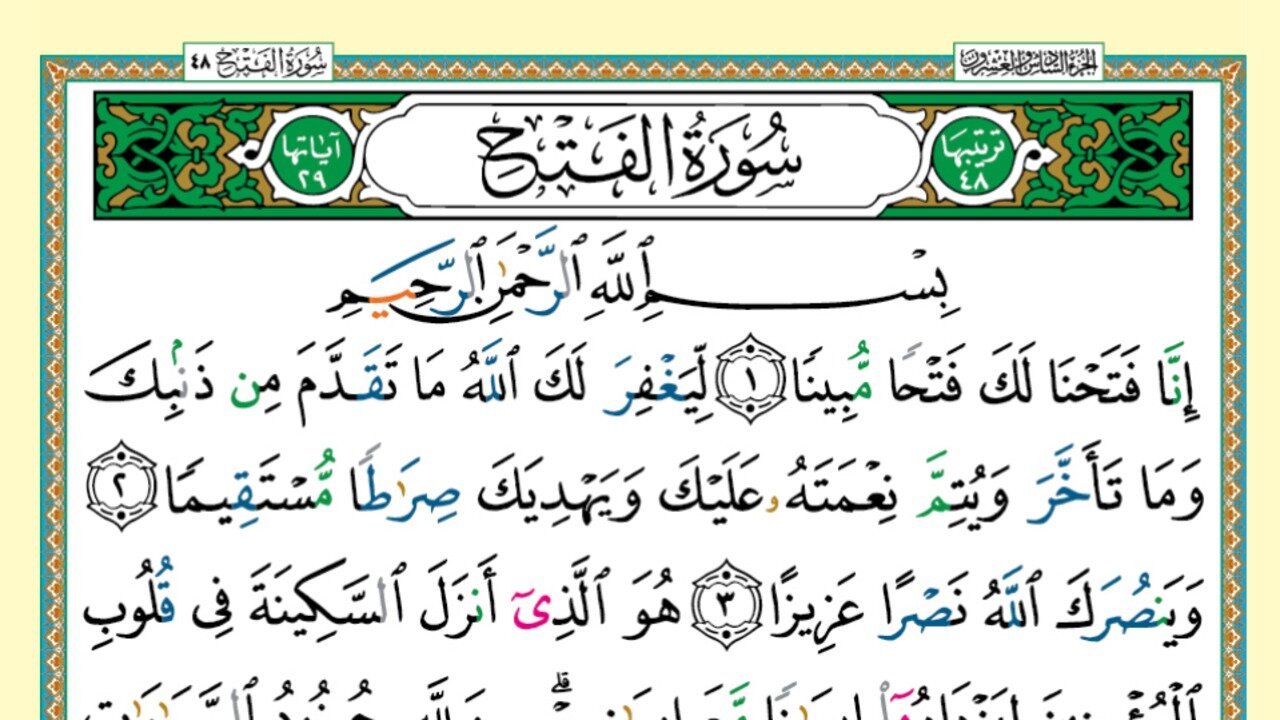 الجزء السادس والعشرون
سُورَةُ الفَتْحِ ٤٨
ترتيبها ٤٨
سُورَةُ الفَتْحِ
آياتها ٢٩
بِسْمِ ٱللَّهِ ٱلرَّحْمَٰنِ ٱلرَّحِيمِ
إِنَّا فَتَحْنَا لَكَ فَتْحًا مُّبِينًا ١ لِّيَغْفِرَ لَكَ ٱللَّهُ مَا تَقَدَّمَ مِن ذَنۢبِكَ
وَمَا تَأَخَّرَ وَيُتِمَّ نِعْمَتَهُۥ عَلَيْكَ وَيَهْدِيَكَ صِرَٰطًا مُّسْتَقِيمًا ٢
وَيَنصُرَكَ ٱللَّهُ نَصْرًا عَزِيزًا ٣ هُوَ ٱلَّذِىٓ أَنزَلَ ٱلسَّكِينَةَ فِى قُلُوبِ